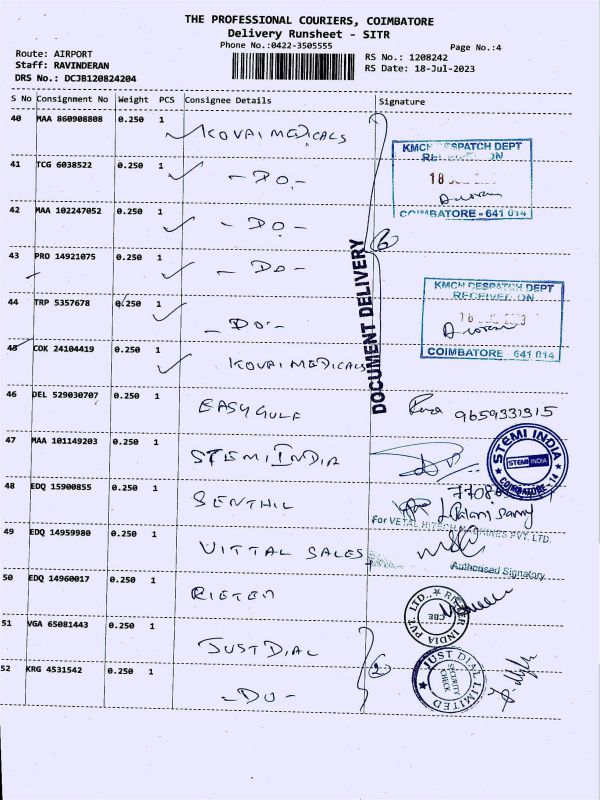 THE PROFESSIONAL COURIERS, COIMBATORE
Delivery Runsheet - SITR
Phone No.:0422-3505555
Page No.:4
Route: AIRPORT
Staff: RAVINDERAN
DRS No.: DCJB120824204
RS No.: 1208242
RS Date: 18-Jul-2023
S No Consignment No Weight PCS Consignee Details Signature
40 MAA 860908808 0.250 1 KOVAI MEDICALS
KMCH DESPATCH DEPT
RECEIVED ON
18
COIMBATORE - 641 014
41 TCG 6038522 0.250 1 - DO -
42 MAA 102247052 0.250 1 - DO -
6
43 PRO 14921075 0.250 1 - DO -
DOCUMENT DELIVERY
KMCH DESPATCH DEPT
RECEIVED ON
18
COIMBATORE 641 014
44 TRP 5357678 0.250 1 - DO -
45 COK 24104419 0.250 1 KOVAI MEDICALS
46 DEL 529030707 0.250 1 EASYGULF
9659331915
47 MAA 101149203 0.250 1 STEMI INDIA
STEMI INDIA
STEMI INDIA
COIMBATORE - 14
48 EDQ 15900855 0.250 1 SENTHIL
For VETAL HITECH MACHINES PVT. LTD.
49 EDQ 14959980 0.250 1 VITTAL SALES
Authorised Signatory
50 EDQ 14960017 0.250 1 RIETER
RIETER INDIA PVT. LTD.
CBE
51 VGA 65081443 0.250 1 JUSTDIAL
2
JUST DIAL LIMITED
SECURITY
CHECK
52 KRG 4531542 0.250 1 - DO -